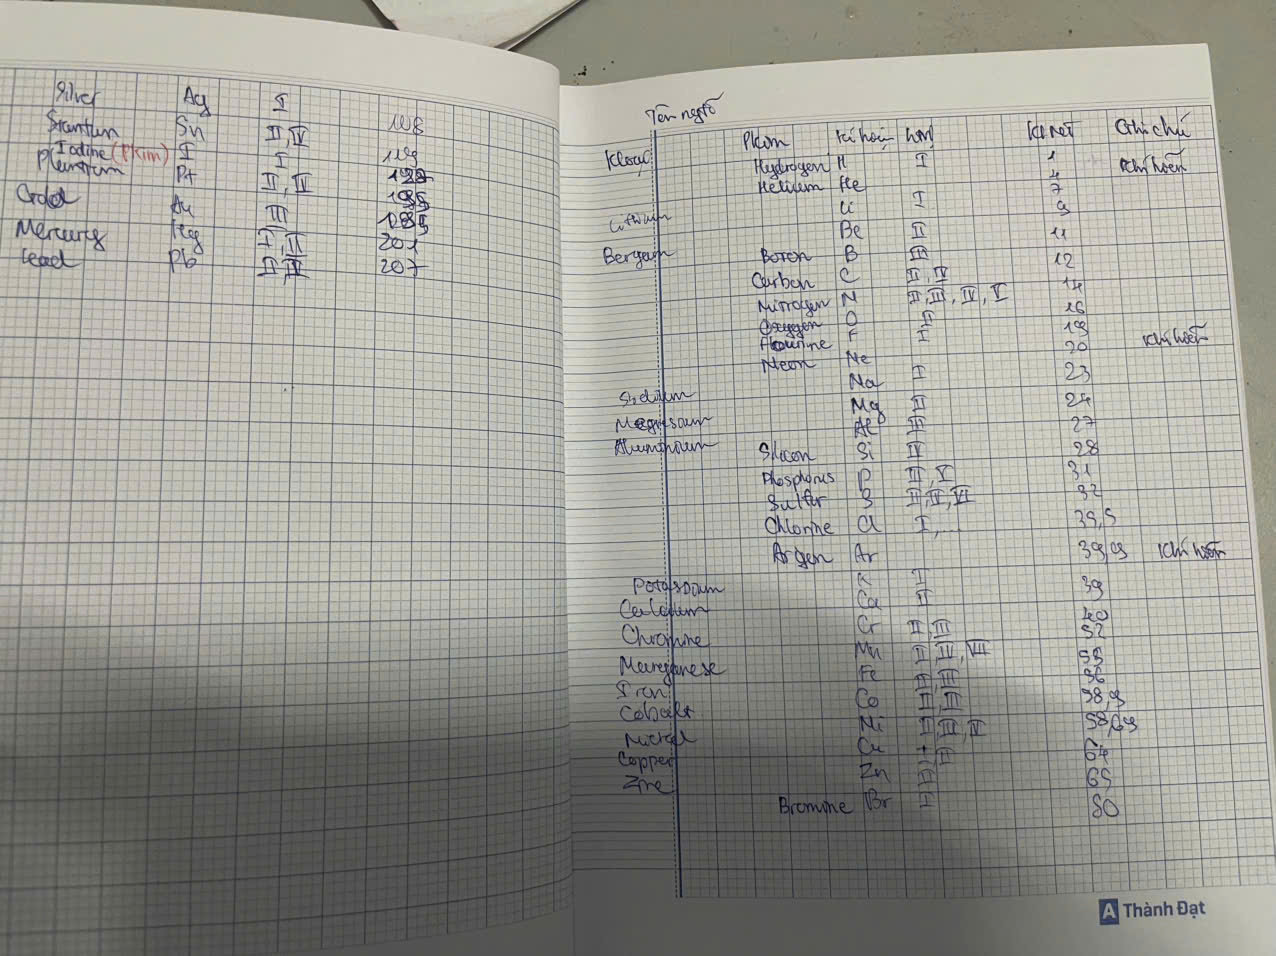 Silver Ag I 108
Stantum Sn II, IV 119
Iodine (Pkim) I I 127
Plantinum Pt II, IV 195
Gold Au III
Mercury Hg I, II 201
Lead Pb II, IV 207
Tên ngtố
Kloại Pkim Kí hiệu htrị Kl ngt Ghi chú
Hydrogen H I 1 Khí hiếm
Helium He 4
Lithium Li I 7
Be II 9
Boron B III 11
Carbon C II, IV 12
Nitrogen N II, III, IV, V 14
Oxygen O II 16
Flourine F I 19
Neon Ne 20 Khí hiếm
Sodium Na I 23
Magnesium Mg II 24
Aluminium Al III 27
Silicon Si IV 28
Phosphorus P III, V 31
Sulfur S II, IV, VI 32
Chlorine Cl I,... 35,5
Argon Ar 39,9 Khí hiếm
Potassium K I 39
Calcium Ca II 40
Chromine Cr II, III 52
Manganese Mn II, IV, VII 55
Iron Fe II, III 56
Cobalt Co II, III 58,9
Nickel Ni II, III, IV 58,69
Copper Cu I, II 64
Zinc Zn II 65
Bromine Br I 80
A Thành Đạt